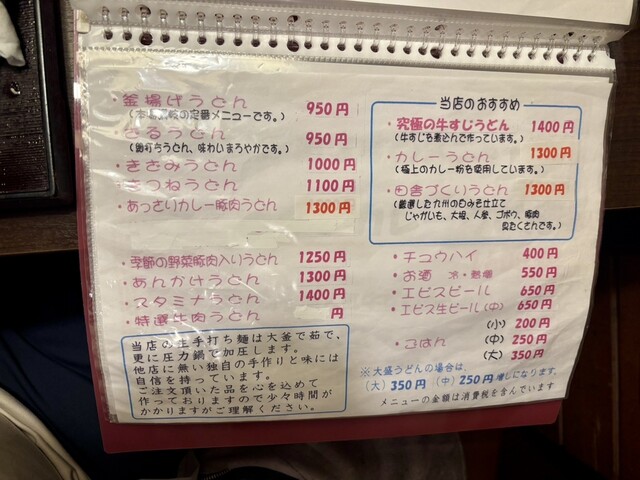 ・釜揚げうどん 950円
(本場讃岐の定番メニューです。)
・ざるうどん 950円
(鎚打ちうどん、味わいまろやかです。)
・きざみうどん 1000円
・きつねうどん 1100円
・あっさりカレー豚肉うどん 1300円
・季節の野菜豚肉入りうどん 1250円
・あんかけうどん 1300円
・スタミナうどん 1400円
・特選牛肉うどん 円
当店の生手打ち麺は大釜で茹で、
更に圧力鍋で加圧します。
他店に無い独自の手作りと味には
自信を持っています。
ご注文頂いた品を心を込めて
作っておりますので少々時間が
かかりますがご理解ください。
当店のおすすめ
・究極の牛すじうどん 1400円
(牛すじを煮込んで作っています。)
・カレーうどん 1300円
(極上のカレー粉を使用しています。)
・田舎づくりうどん 1300円
(厳選した九州の白みそ仕立て
じゃがいも、大根、人参、ゴボウ、豚肉
具たくさんです。)
・チュウハイ 400円
・お酒 冷・熱燗 550円
・エビスビール 650円
・エビス生ビール(中) 650円
(小) 200円
・ごはん (中) 250円
(大) 350円
※大盛うどんの場合は、
(大)350円 (中)250円増しになります。
メニューの金額は消費税を含んでいます